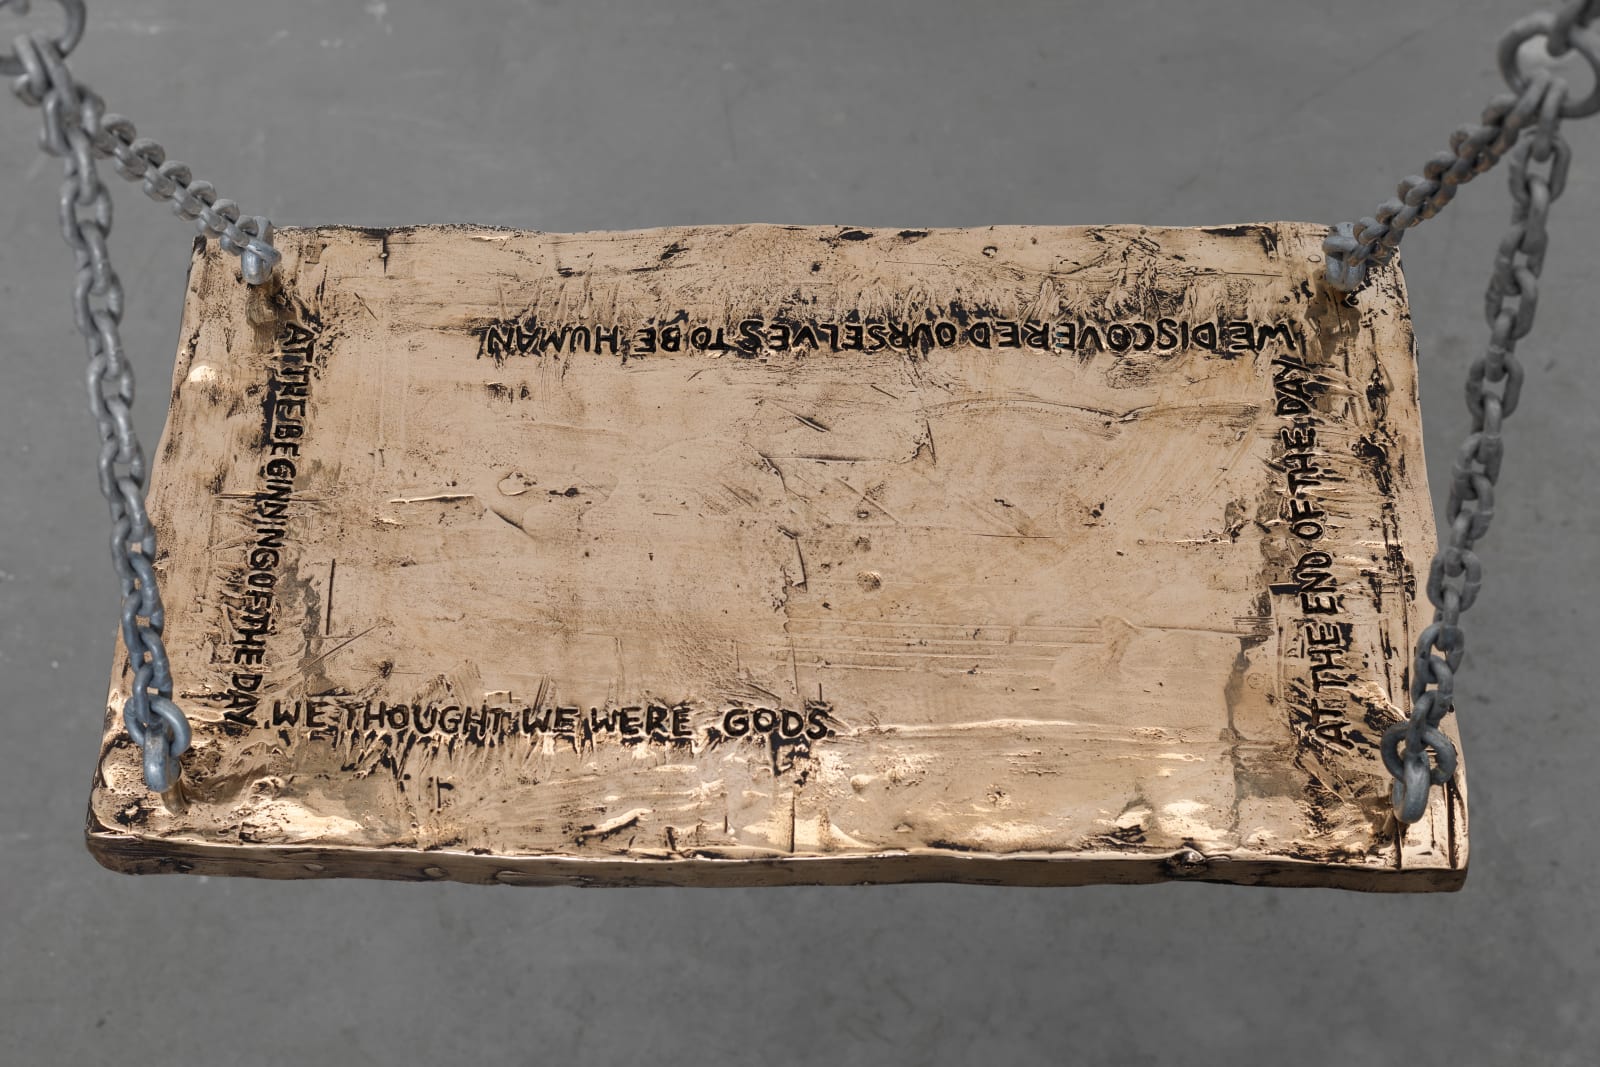 AT THE BEGINNING OF THE DAY
WE THOUGHT WE WERE GODS
AT THE END OF THE DAY
WE DISCOVERED OURSELVES TO BE HUMAN